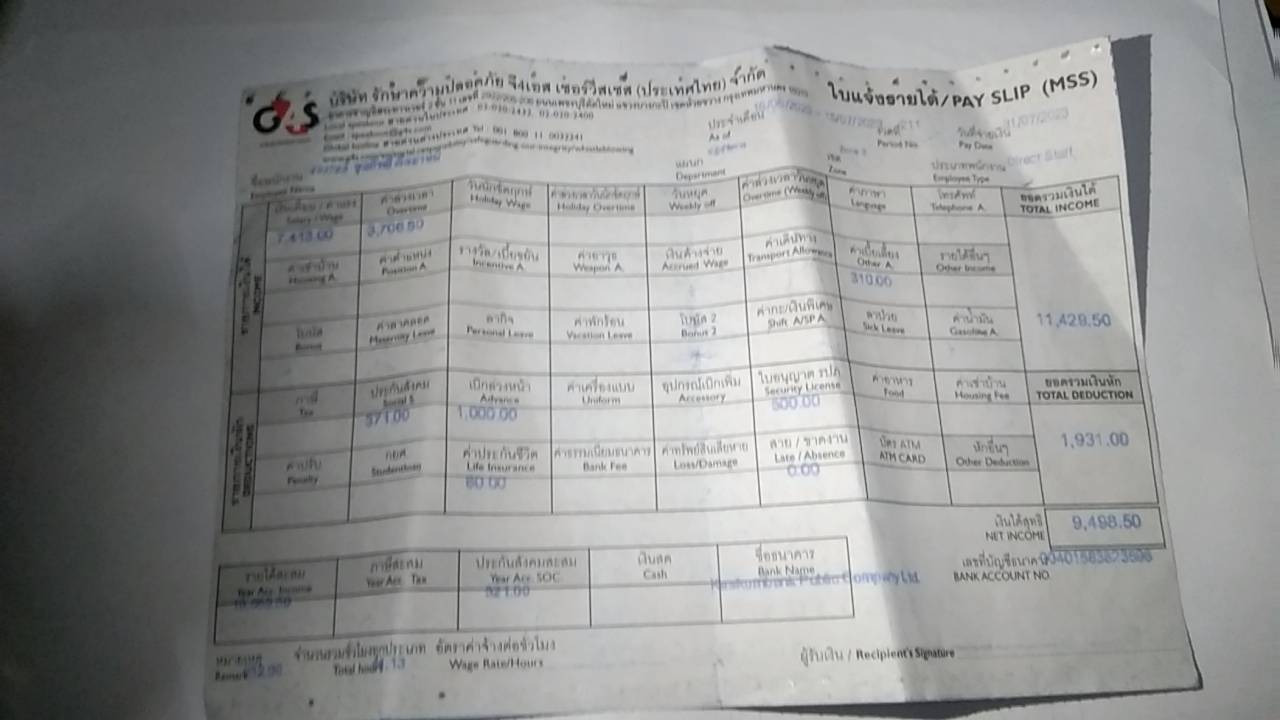 G4S
บริษัท รักษาความปลอดภัย จีโฟร์เอส เซอร์วิสเซส (ประเทศไทย) จำกัด
ใบแจ้งรายได้/PAY SLIP (MSS)
ประจำเดือน
As of
งวดที่ 211
Period No.
วันที่จ่ายเงิน 31/07/2023
Pay Date
แผนก
Department
Zone
ประเภทพนักงาน Direct Staff
Employee Type
Salary / Wage
ค่าล่วงเวลา
Overtime
วันนักขัตฤกษ์
Holiday Wage
Holiday Overtime
วันหยุด
Weekly off
Overtime (Weekly off)
ค่าภาษา
Language
โทรศัพท์
Telephone A.
ยอดรวมเงินได้
TOTAL INCOME
7,413.00
3,706.50
ค่าเช่าบ้าน
Housing A.
ค่าตำแหน่ง
Position A.
รางวัล/เบี้ยขยัน
Incentive A.
ค่าอาวุธ
Weapon A.
เงินค้างจ่าย
Accrued Wage
ค่าเดินทาง
Transport Allowance
ค่าเบี้ยเลี้ยง
Other A.
รายได้อื่นๆ
Other Income
310.00
INCOME
โบนัส
Bonus
ค่าลาคลอด
Maternity Leave
ลากิจ
Personal Leave
ค่าพักร้อน
Vacation Leave
โบนัส 2
Bonus 2
ค่ากะ/เงินพิเศษ
Shift A/SP A.
ลาป่วย
Sick Leave
ค่าน้ำมัน
Gasoline A.
11,429.50
ภาษี
Tax
ประกันสังคม
Social S.
เบิกล่วงหน้า
Advance
ค่าเครื่องแบบ
Uniform
อุปกรณ์เบิกเพิ่ม
Accessory
ใบอนุญาต รปภ
Security License
ค่าอาหาร
Food
ค่าเช่าบ้าน
Housing Fee
ยอดรวมเงินหัก
TOTAL DEDUCTION
371.00
1,000.00
500.00
1,931.00
DEDUCTIONS
ค่าปรับ
Penalty
กยศ
Studentloan
ค่าประกันชีวิต
Life Insurance
ค่าธรรมเนียมธนาคาร
Bank Fee
ค่าทรัพย์สินเสียหาย
Loss/Damage
สาย / ขาดงาน
Late / Absence
บัตร ATM
ATM CARD
หักอื่นๆ
Other Deduction
60.00
0.00
เงินได้สุทธิ
NET INCOME
9,498.50
รายได้สะสม
Year Acc. Income
ภาษีสะสม
Year Acc. Tax
ประกันสังคมสะสม
Year Acc. SOC.
เงินสด
Cash
ชื่อธนาคาร
Bank Name
เลขที่บัญชีธนาคาร
BANK ACCOUNT NO.
921.00
Public Company Ltd.
หมายเหตุ
Remark
จำนวนรวมชั่วโมงทุกประเภท
Total hours
อัตราค่าจ้างต่อชั่วโมง
Wage Rate/Hours
ผู้รับเงิน / Recipient's Signature